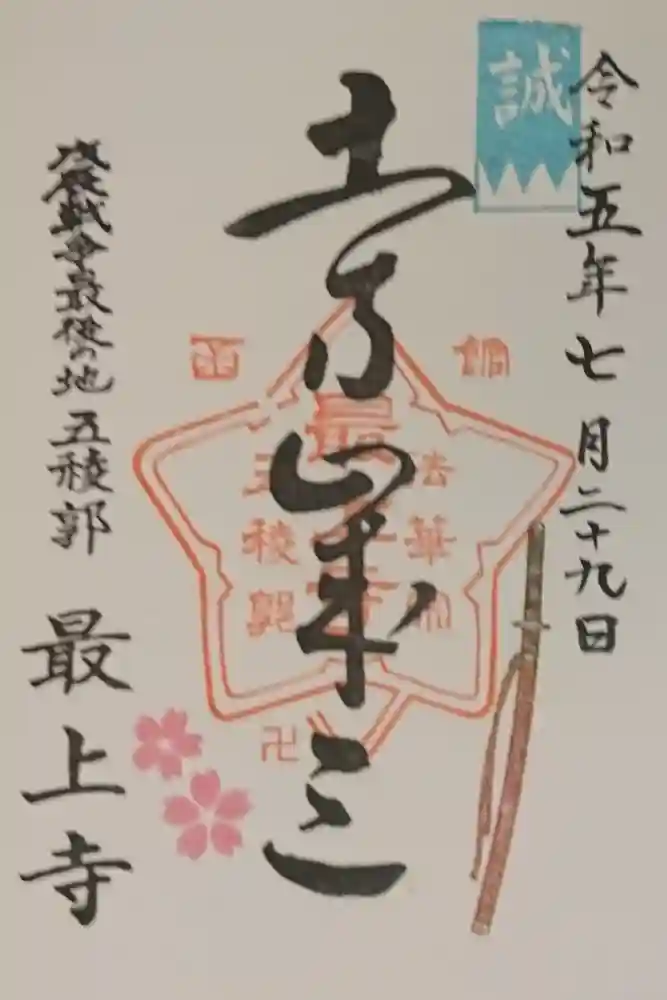 令和五年七月二十九日
誠
土方歳三
法華宗
最上寺
五稜郭
戊辰戦争最後の地 五稜郭
最上寺
卍